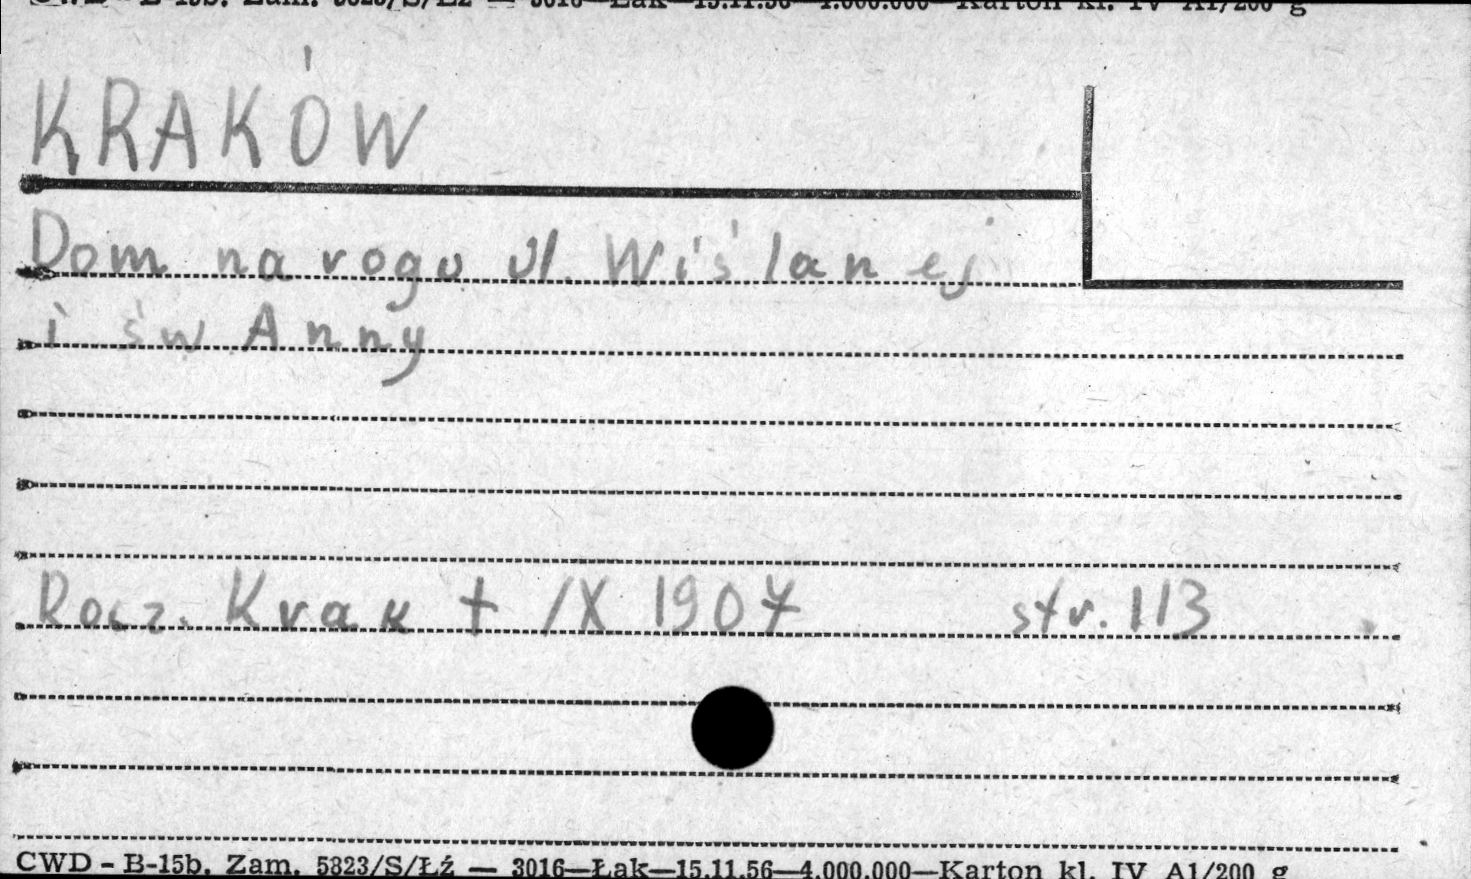 CWD - B-15b. Zam. 5823/S/Łź — 3016—Łak—15.11.56—4.000.000—Karton kl. IV A1/200 g
KRAKÓW
Dom na rogu ul. Wiślanej
i św. Anny
Rocz. Krak t IX 1907 str. 113
CWD - B-15b. Zam. 5823/S/Łź — 3016—Łak—15.11.56—4.000.000—Karton kl. IV A1/200 g